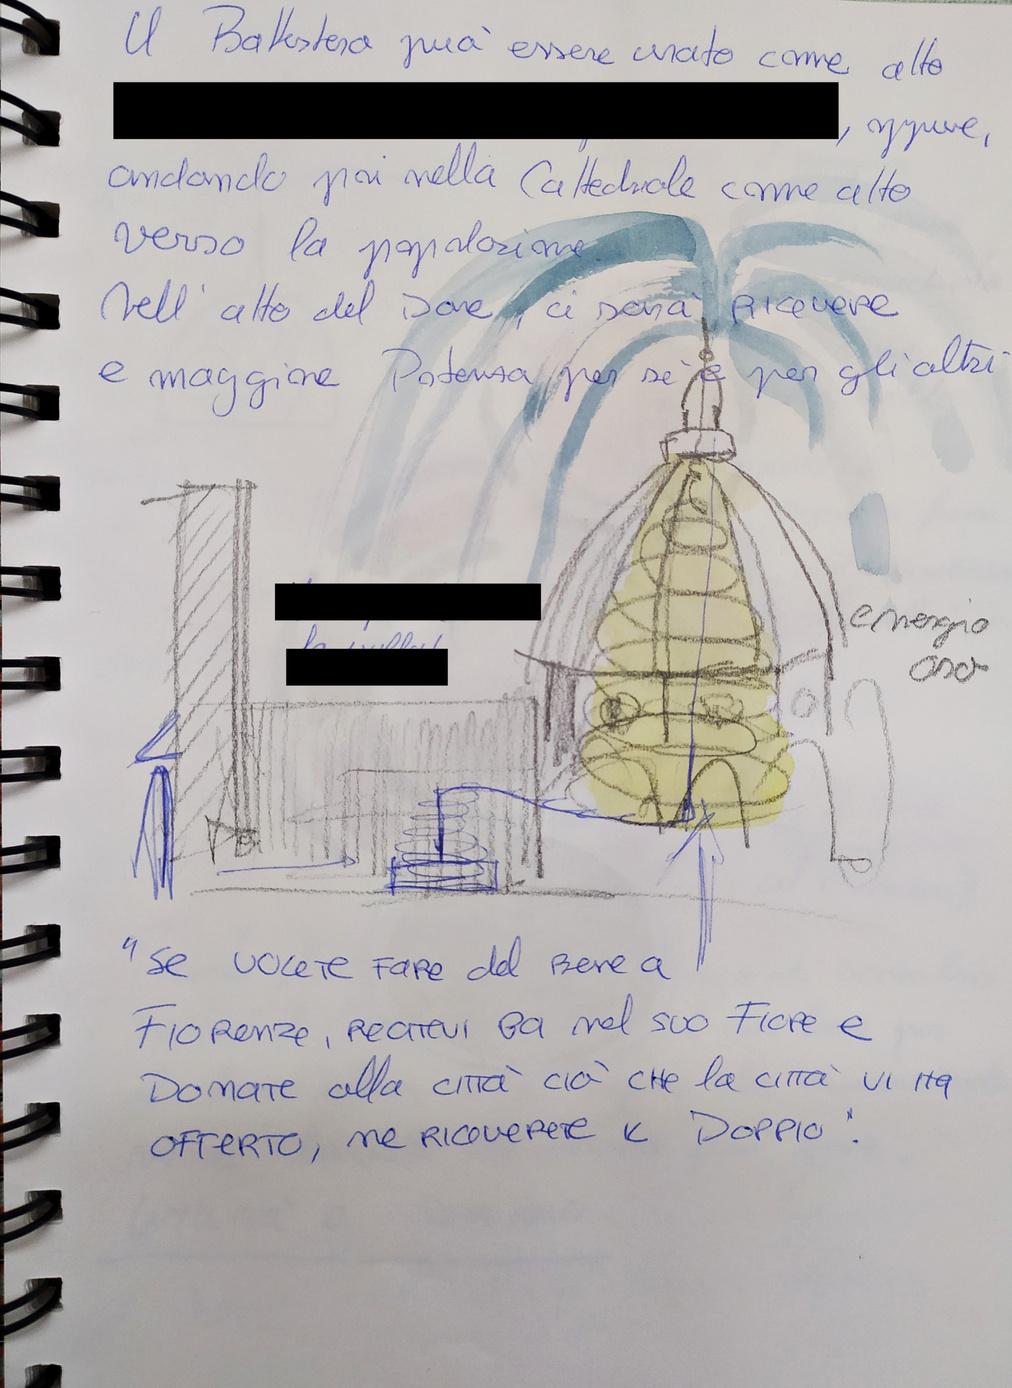 Il Battistero può essere usato come atto
, oppure,
andando poi nella Cattedrale come atto
verso la popolazione
Nell'atto del Dare, ci sarà RICEVERE
e maggiore Potenza per sé e per gli altri
energia
"Se VOLETE FARE del BENE a
FIORENZE, RECATEVI nel SUO FIORE e
DONATE alla CITTÀ CIÒ CHE la CITTÀ VI HA
OFFERTO, NE RICEVERETE IL DOPPIO".